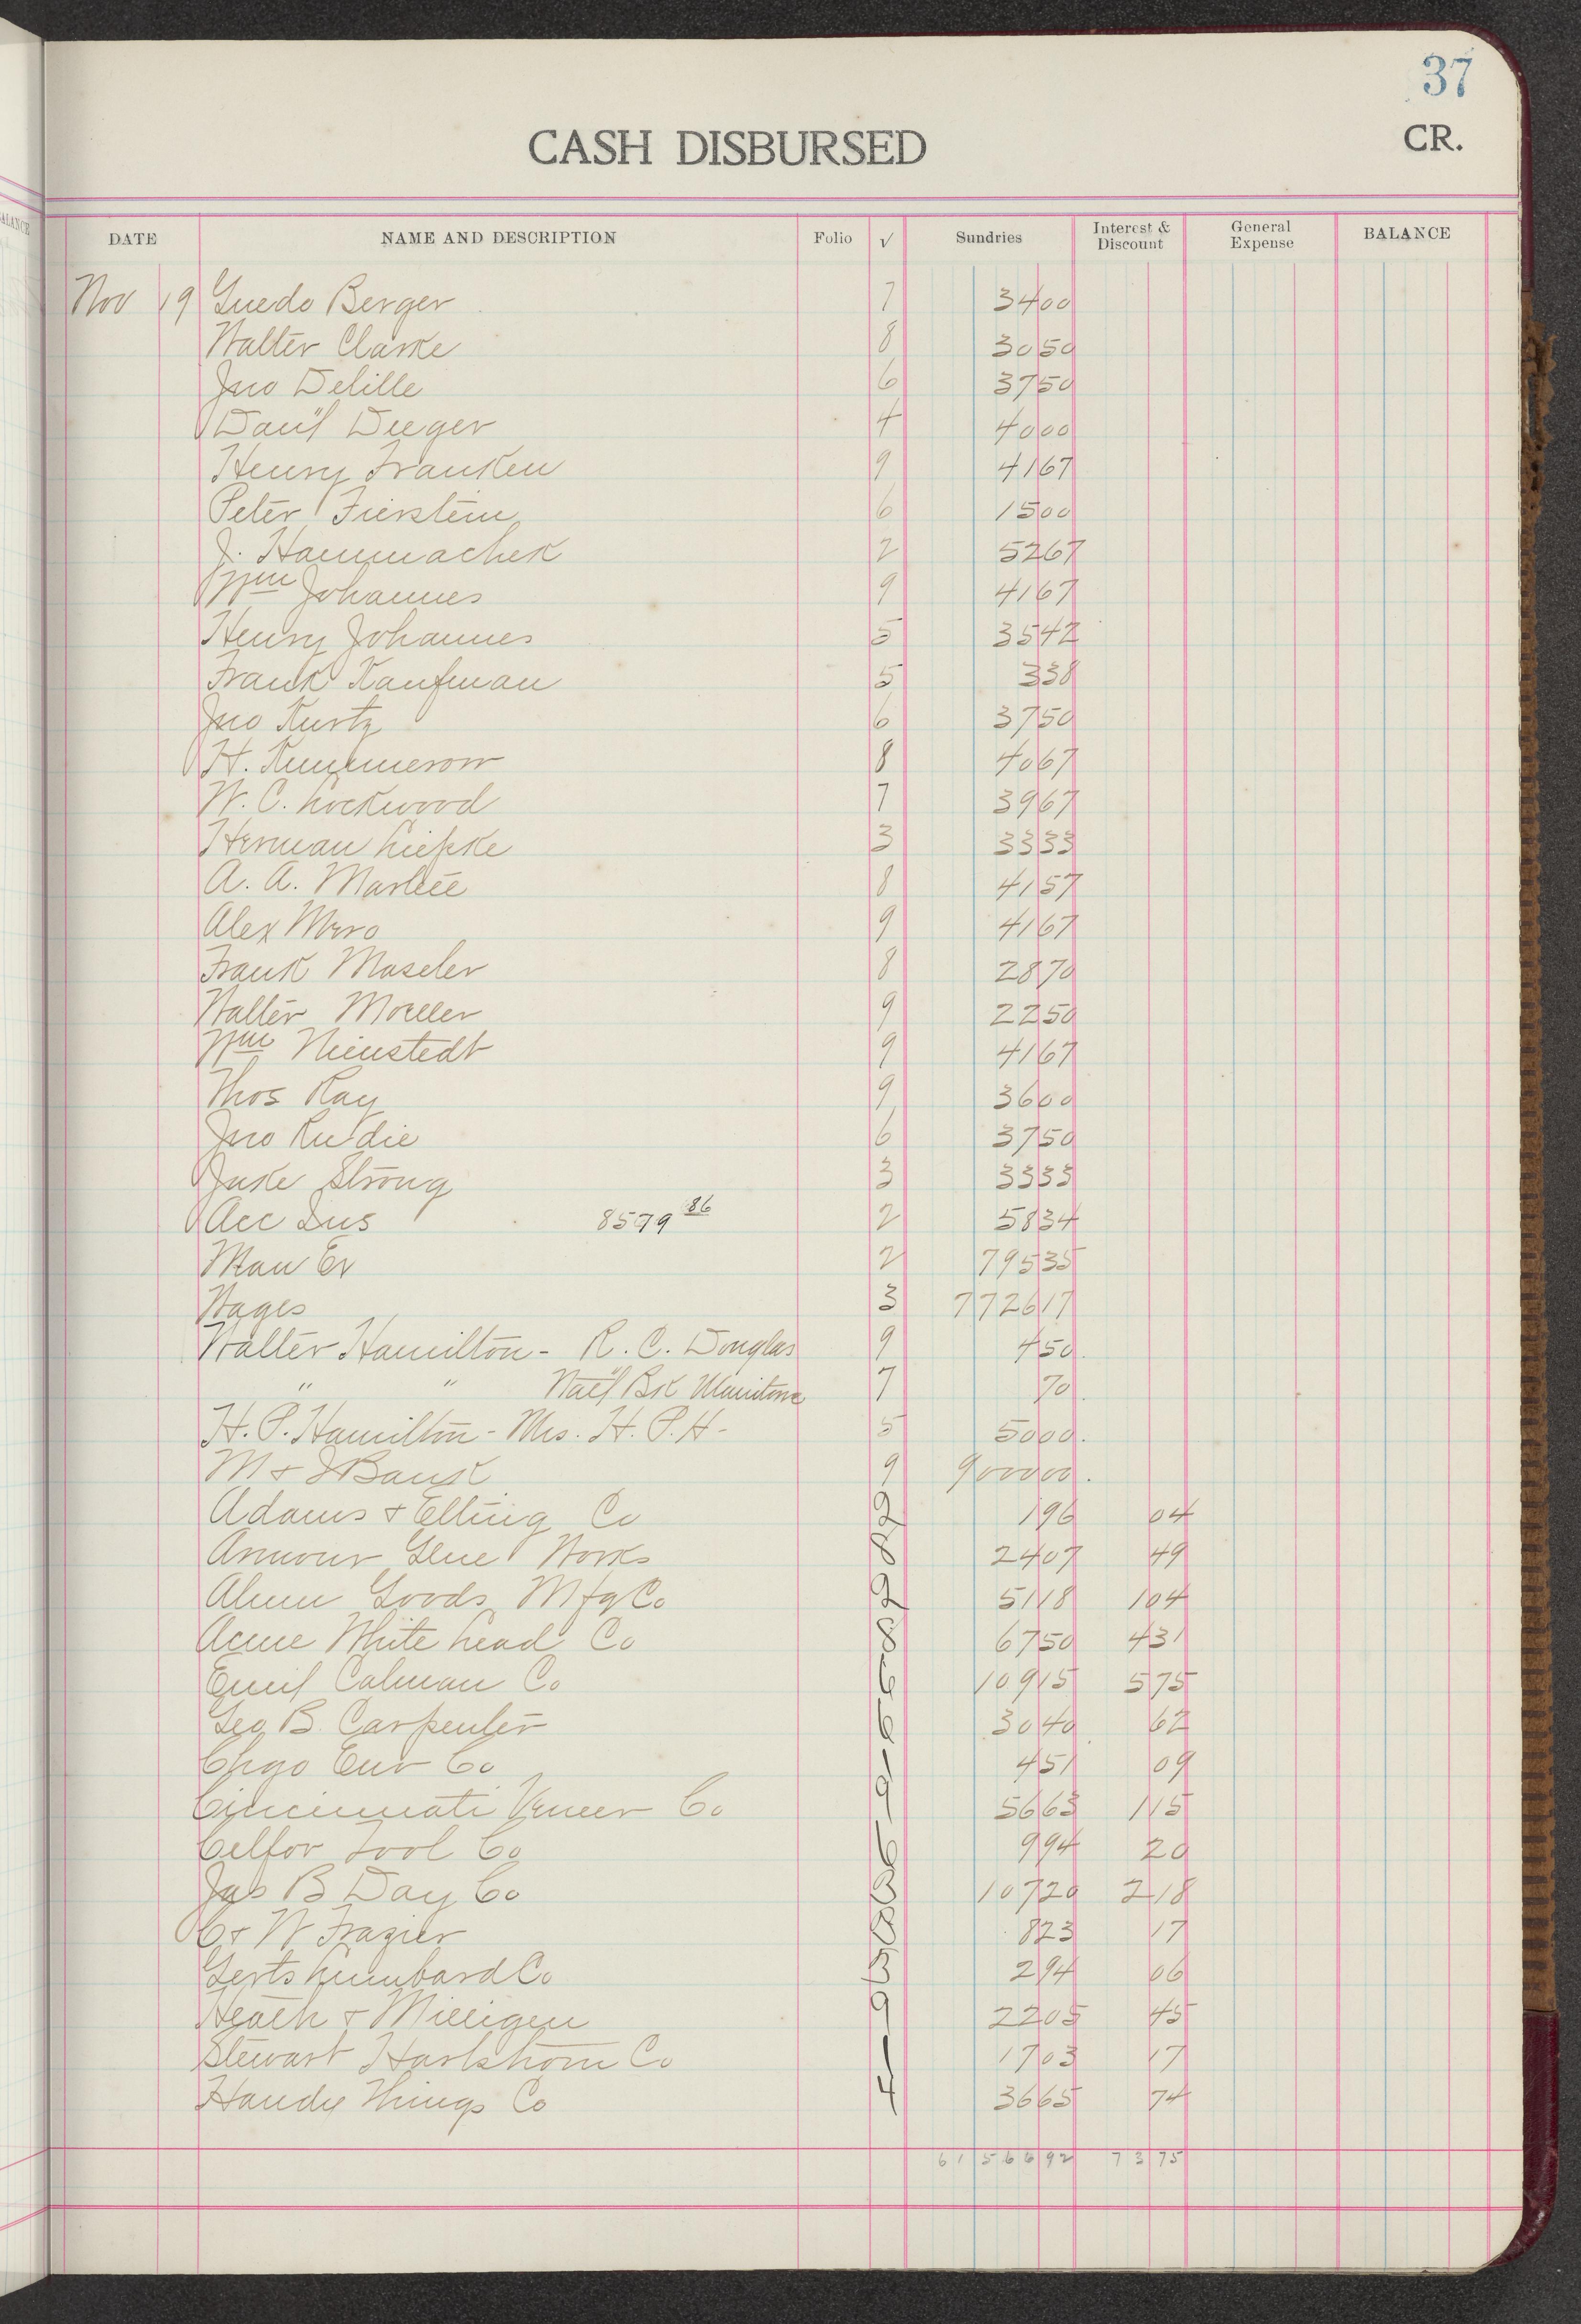 37
CASH DISBURSED CR.
DATE NAME AND DESCRIPTION Folio √ Sundries Interest & Discount General Expense BALANCE
Nov 19 Guedo Berger 7 3400
Walter Clarke 8 3050
Jno Delille 6 3750
Dan'l Deeger 4 4000
Henry Franken 9 4167
Peter Fierstein 6 1500
J. Hammachek 2 5267
Wm Johannes 9 4167
Henry Johannes 5 3542
Frank Kaufman 5 338
Jno Kurtz 6 3750
H. Kummerow 8 4067
W. C. Lockwood 7 3967
Herman Liepke 3 3333
A. A. 8 4157
Alex Mero 9 4167
Frank Maseler 8 2870
Walter Moeller 9 2250
Wm Nienstedt 9 4167
Thos Ray 9 3600
Jno Rudie 6 3750
Jake Strong 3 3333
Acc Ins 8579 86 2 5834
Man Ex 2 79535
Wages 3 772617
Walter Hamilton - R. C. Douglas 9 450
" " Nat'l Bk 7 70
H. P. Hamilton - Mrs. H. P. H - 5 5000
M & J Bank 9 900000
Adams & Elting Co 2 196 04
Armour Glue Works 8 2407 49
Alum Goods Mfg Co 2 5118 104
Acme White Lead Co 8 6750 431
Emil Calman Co 10915 575
Geo B. Carpenter 3040 62
Chgo Env Co 451 09
Cincinnati Veneer Co 9 5663 115
Celfor Tool Co 994 20
Jas B Day Co 10720 218
C & W Frazier 823 17
Gerts Lumbard Co 3 294 06
Heath & Milligen 9 2205 45
Stewart Hartshorn Co 1703 17
Handy Things Co 4 3665 74
6156692 7375